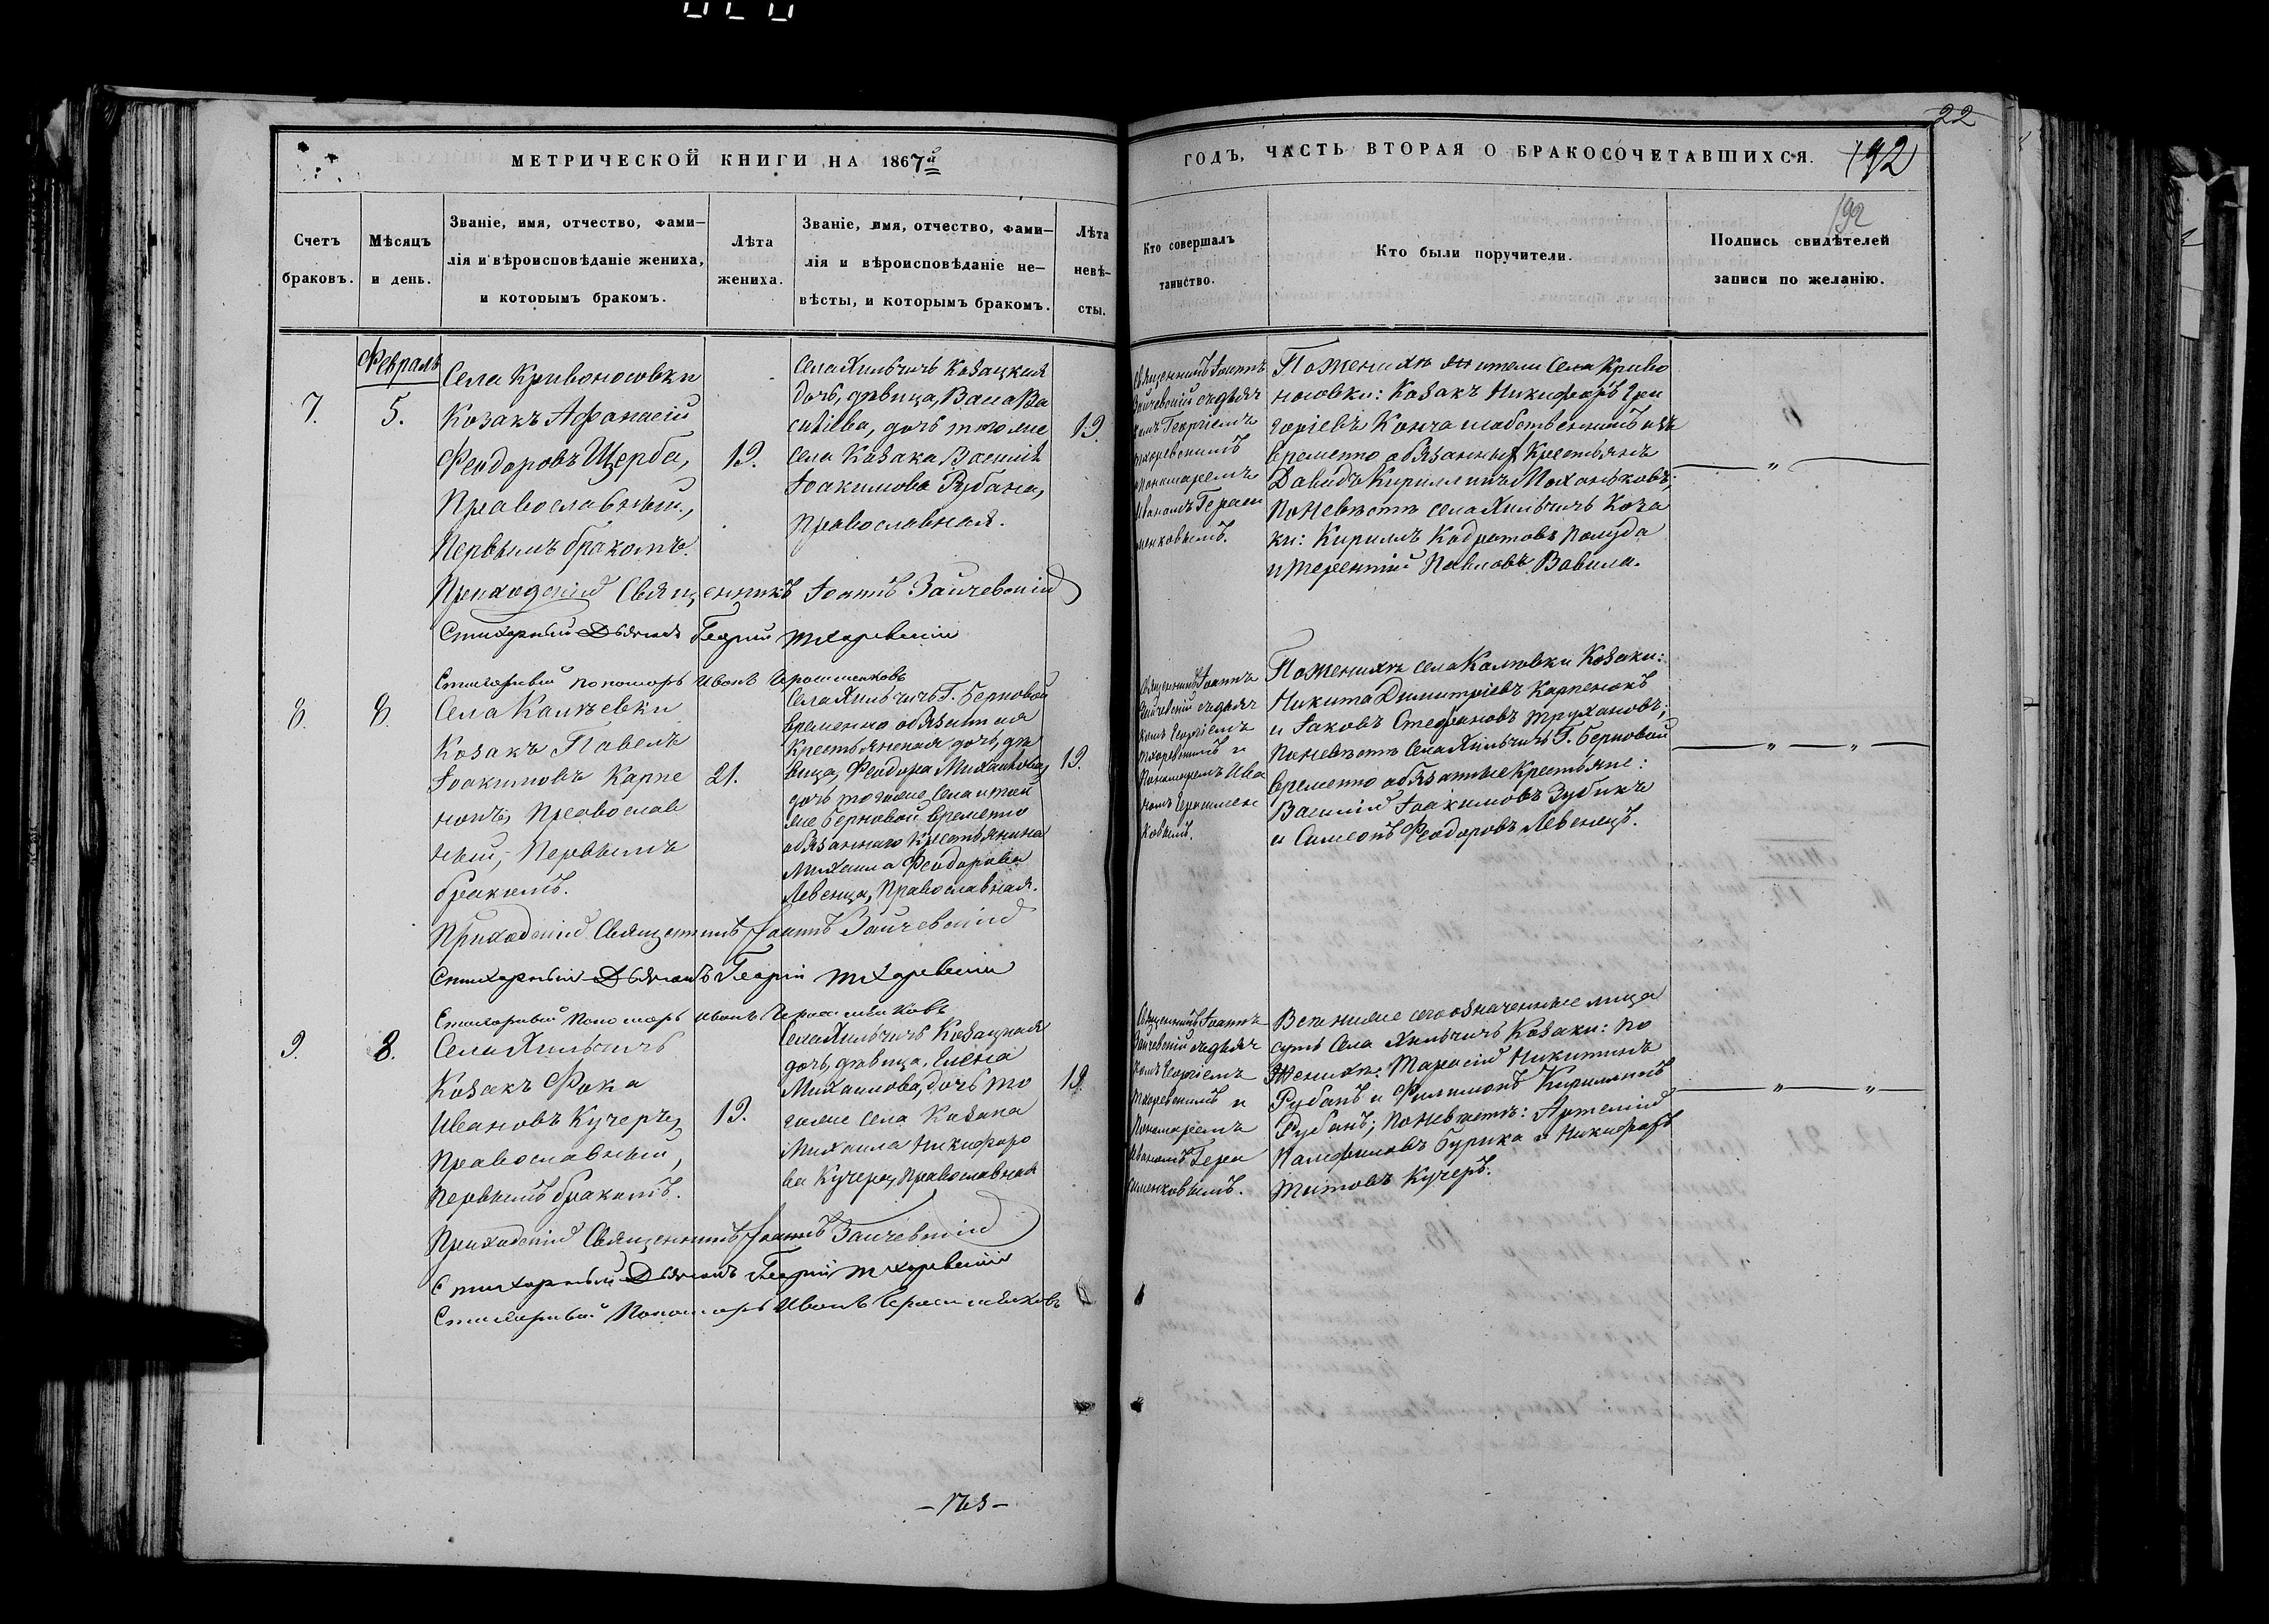 22
МЕТРИЧЕСКОЙ КНИГИ НА 1867й
ГОДЪ, ЧАСТЬ ВТОРАЯ О БРАКОСОЧЕТАВШИХСЯ.
192
192
Счетъ
браковъ.
Мѣсяцъ
и день.
Званіе, имя, отчество, фами–
лія и вѣроисповѣданіе жениха,
и которымъ бракомъ.
Лѣта
жениха.
Званіе, имя, отчество, фами–
лія и вѣроисповѣданіе не–
вѣсты, и которымъ бракомъ.
Лѣта
невѣ–
сты.
Кто совершалъ
таинство.
Кто были поручители.
Подпись свидѣтелей
записи по желанію.
Февраль
7.
5.
Села Кривоносовки
Козакъ Афанасій
Феодоровъ Щерба,
Православный,
Первымъ бракомъ.
19.
Села Хильчичъ Козацкая
дочь, дѣвица, Васса Ва
силіева, дочь тогоже
села Козака Василія
Іоакимова Рубана,
Православная.
19.
Священникъ Іоаннъ
Зайчевскій съ дьяч
комъ Георгіемъ
Тхоревскимъ
и Пономаремъ
Иваномъ Гераси
менковымъ.
По женихѣ жители Села Криво
носовки: Козакъ Никифоръ Гри
горіевъ Конча и собственникъ изъ
временно обязанныхъ Крестьянъ
Давидъ Кириллинъ
По невѣстѣ села Хильчичъ Коза
ки: Кириллъ Кодратовъ Полуда
и Терентій Павловъ Вавила.
Приходскій Священникъ Іоаннъ Зайчевскій
Стихарный Дьячокъ Георгій Тхоревскій
Стихарный Пономарь Иванъ Герасименковъ
8.
8.
Села Калѣевки
Козакъ Павелъ
Іоакимовъ Карпе
нокъ, Православ
ный, Первымъ
бракомъ.
21.
Села Хильчичъ Г. Берновой
временно обязанная
Крестьянская дочь, дѣ
вица, Феодора Михаилова,
дочь тогоже села и той
же Берновой временно
обязаннаго Крестьянина
Михаила Феодорова
Левенца, Православная.
19.
Священникъ Іоаннъ
Зайчевскій съ дьяч
комъ Георгіемъ
Тхоревскимъ и
Пономаремъ Ива
номъ Герасимен
ковымъ.
По женихѣ села Калѣевки Козаки:
Никита Димитріевъ Карпенокъ
и Іаковъ Стефановъ Трухановъ;
По невѣстѣ Села Хильчичъ Г. Берновой
временно обязанные Крестьяне:
Василій Іоакимовъ Зубикъ
и Симеонъ Феодоровъ Левенецъ.
Приходскій Священникъ Іоаннъ Зайчевскій
Стихарный Дьячокъ Георгій Тхоревскій
Стихарный Пономарь Иванъ Герасименковъ
9.
8.
Села Хильчичъ
Козакъ Фока
Ивановъ Кучеръ,
Православный,
Первымъ бракомъ.
19.
Села Хильчичъ Козацкая
дочь, дѣвица, Елена
Михаилова, дочь то
гоже села Козака
Михаила Никифоро
ва Кучера, Православная
19.
Священникъ Іоаннъ
Зайчевскій съ дьяч
комъ Георгіемъ
Тхоревскимъ и
Пономаремъ
Иваномъ Гера
сименковымъ.
Всѣ ниже сего означенные лица
суть Села Хильчичъ Козаки: По
Женихѣ: Тарасій Никитинъ
Рубанъ и Филимонъ Кириллинъ
Рубанъ; По невѣстѣ: Артемій
Памфиловъ Бурика и Никифоръ
Титовъ Кучеръ.
Приходскій Священникъ Іоаннъ Зайчевскій
Стихарный Дьячокъ Георгій Тхоревскій
Стихарный Пономарь Иванъ Герасименковъ